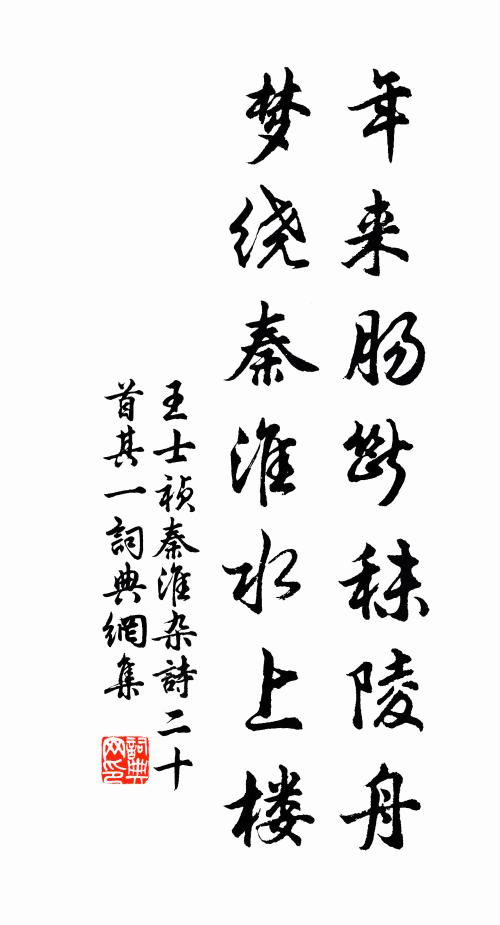 年来肠断秣陵舟
梦绕秦淮水上楼
王士祯秦淮杂詩二十
首其一詞典網集
詞典
网印